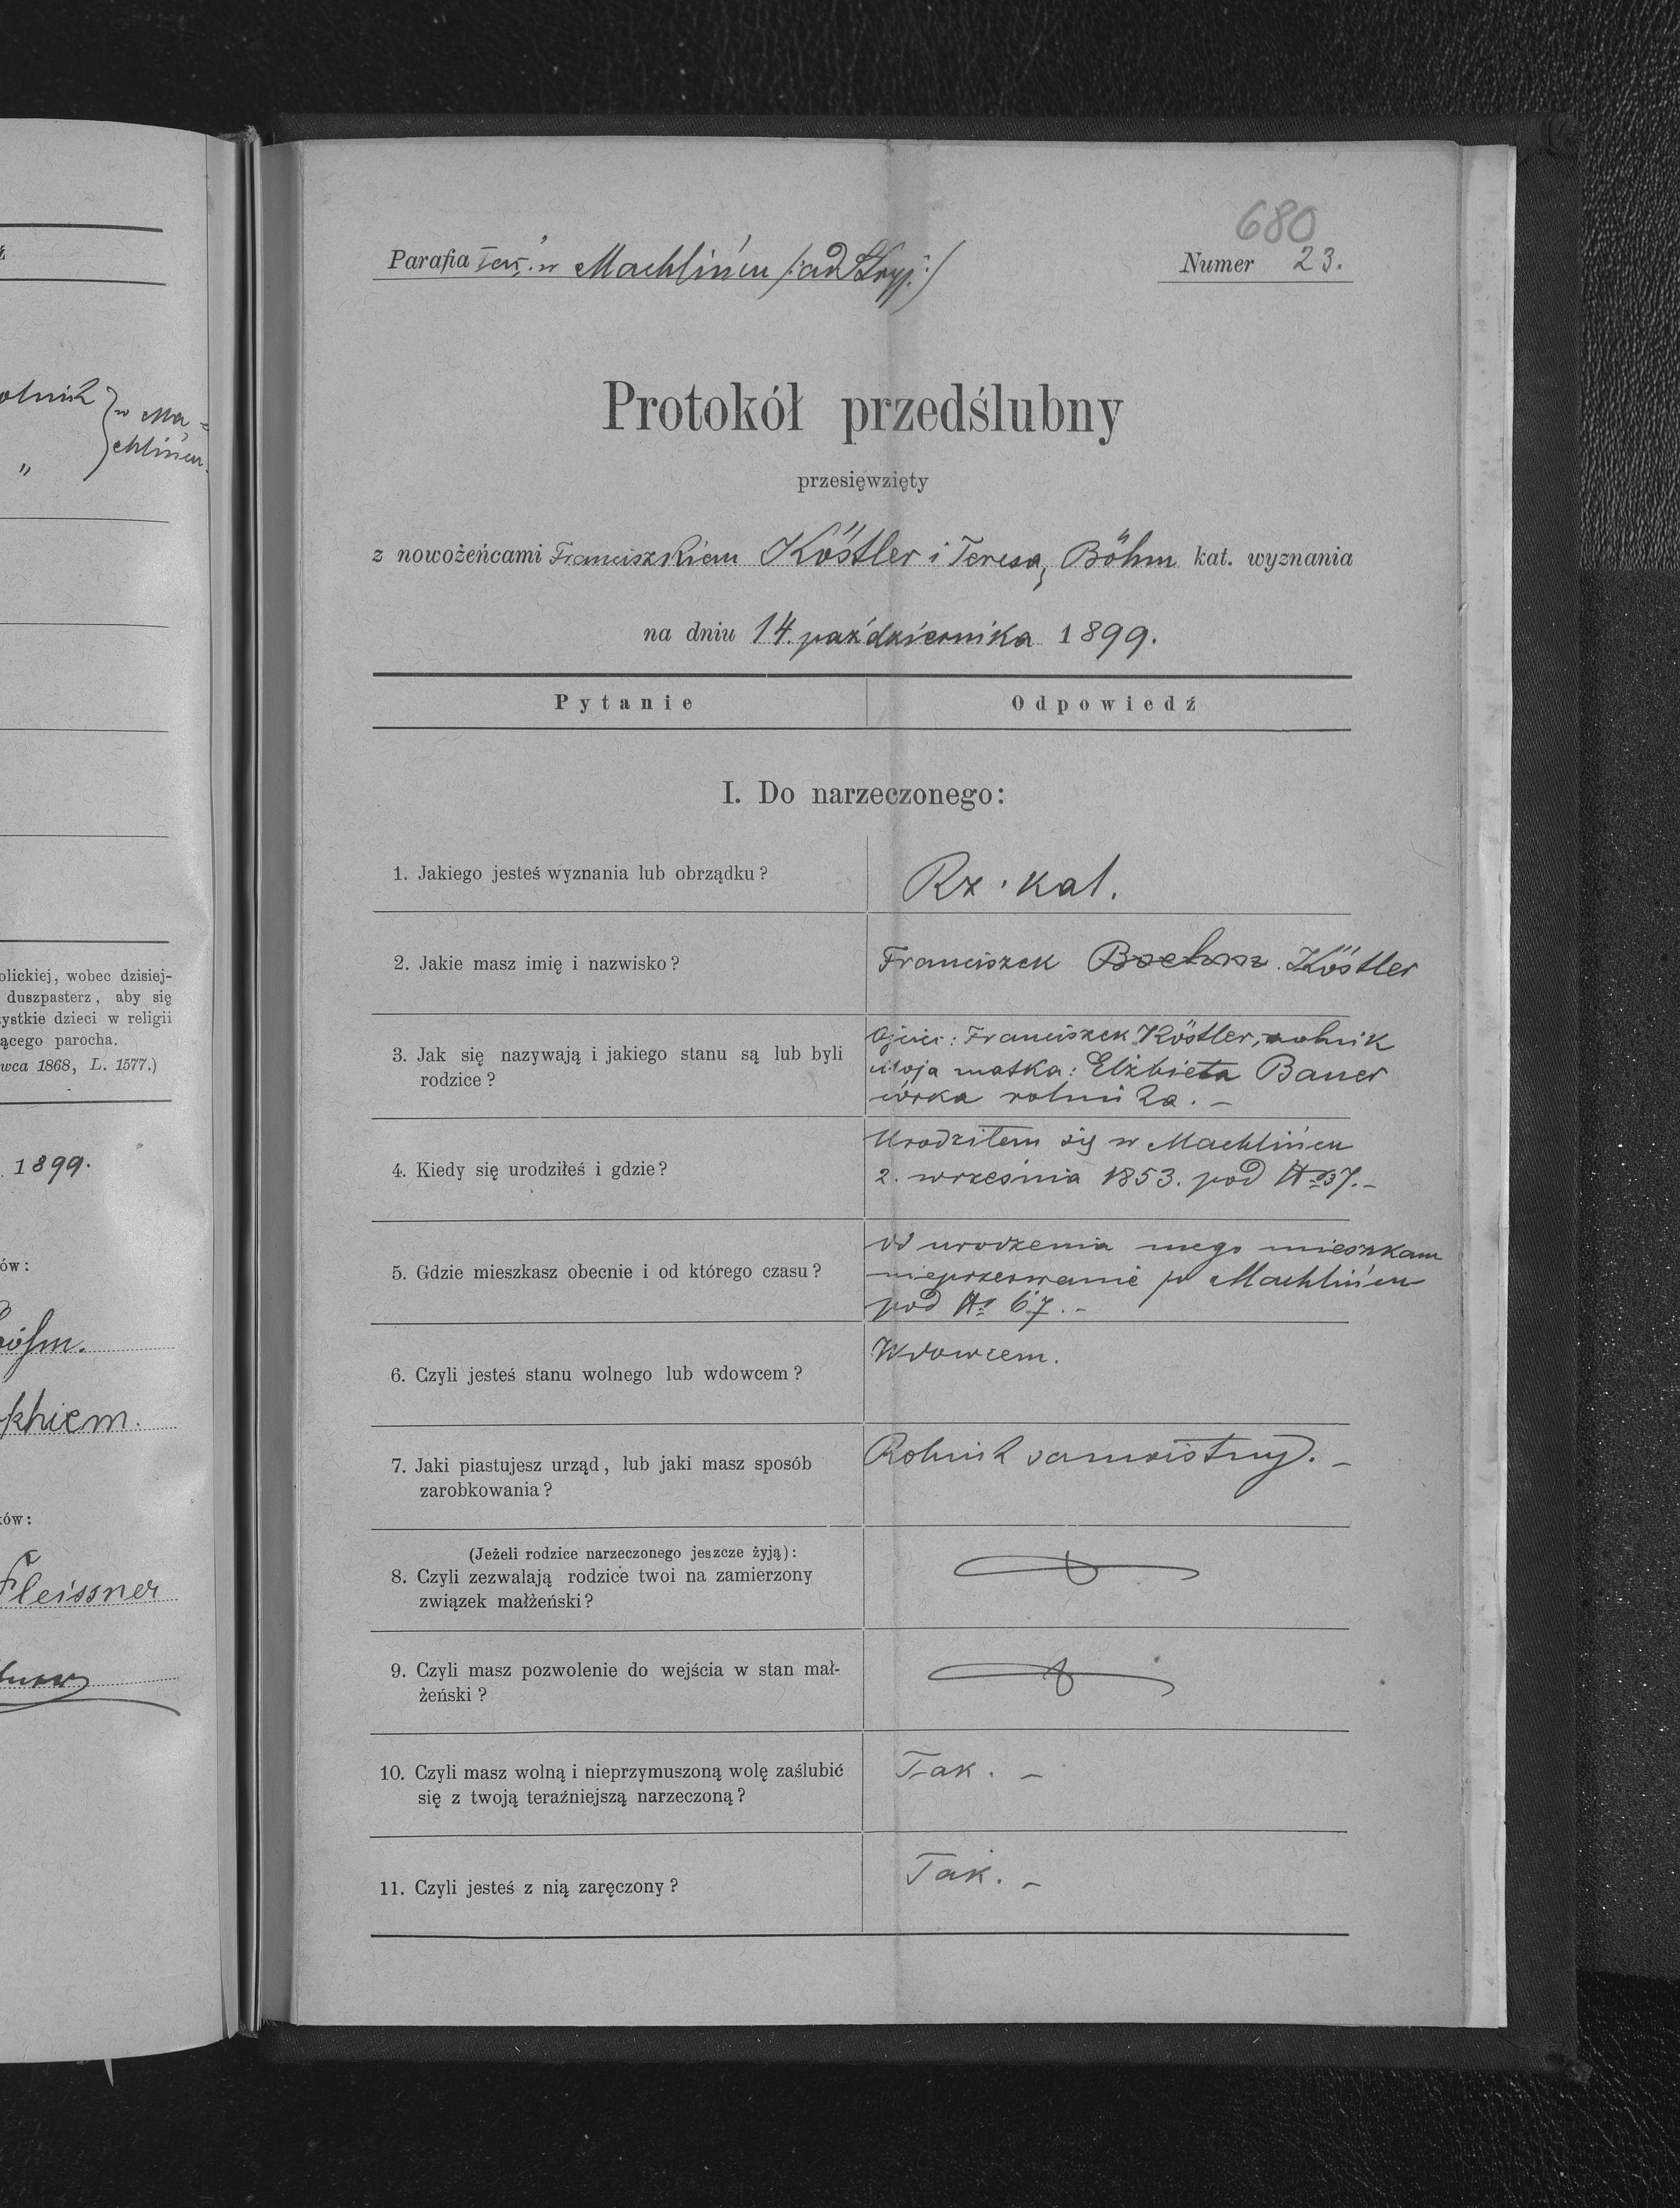 ź
olnik
„
w Ma-
chlińcu.
olickiej, wobec dzisiej-
duszpasterz, aby się
zystkie dzieci w religii
ącego parocha.
wca 1868, L. 1577.)
1899.
ów:
böhm.
khiem.
ków:
Fleissner
680
Parafia w Machlińcu /:ad Stryj:/
Numer 23.
Protokół przedślubny
przesięwzięty
z nowożeńcami Franciszkiem Köstler i Teresą Böhm kat. wyznania
na dniu 14. października 1899.
Pytanie
Odpowiedź
I. Do narzeczonego:
1. Jakiego jesteś wyznania lub obrządku?
Rz. kat.
2. Jakie masz imię i nazwisko?
Franciszek Boehm. Köstler
3. Jak się nazywają i jakiego stanu są lub byli
rodzice?
Ojciec: Franciszek Köstler, rolnik
Moja matka: Elżbieta Bauer
córka rolnika. –
4. Kiedy się urodziłeś i gdzie?
Urodziłem się w Machlińcu
2. września 1853. pod No 37. –
5. Gdzie mieszkasz obecnie i od którego czasu?
od urodzenia mego mieszkam
nieprzerwanie w Machlińcu
pod No 67. –
6. Czyli jesteś stanu wolnego lub wdowcem?
Wdowcem.
7. Jaki piastujesz urząd, lub jaki masz sposób
zarobkowania?
Rolnik samoistny. –
(Jeżeli rodzice narzeczonego jeszcze żyją):
8. Czyli zezwalają rodzice twoi na zamierzony
związek małżeński?
9. Czyli masz pozwolenie do wejścia w stan mał-
żeński?
10. Czyli masz wolną i nieprzymuszoną wolę zaślubić
się z twoją teraźniejszą narzeczoną?
Tak. –
11. Czyli jesteś z nią zaręczony?
Tak. –